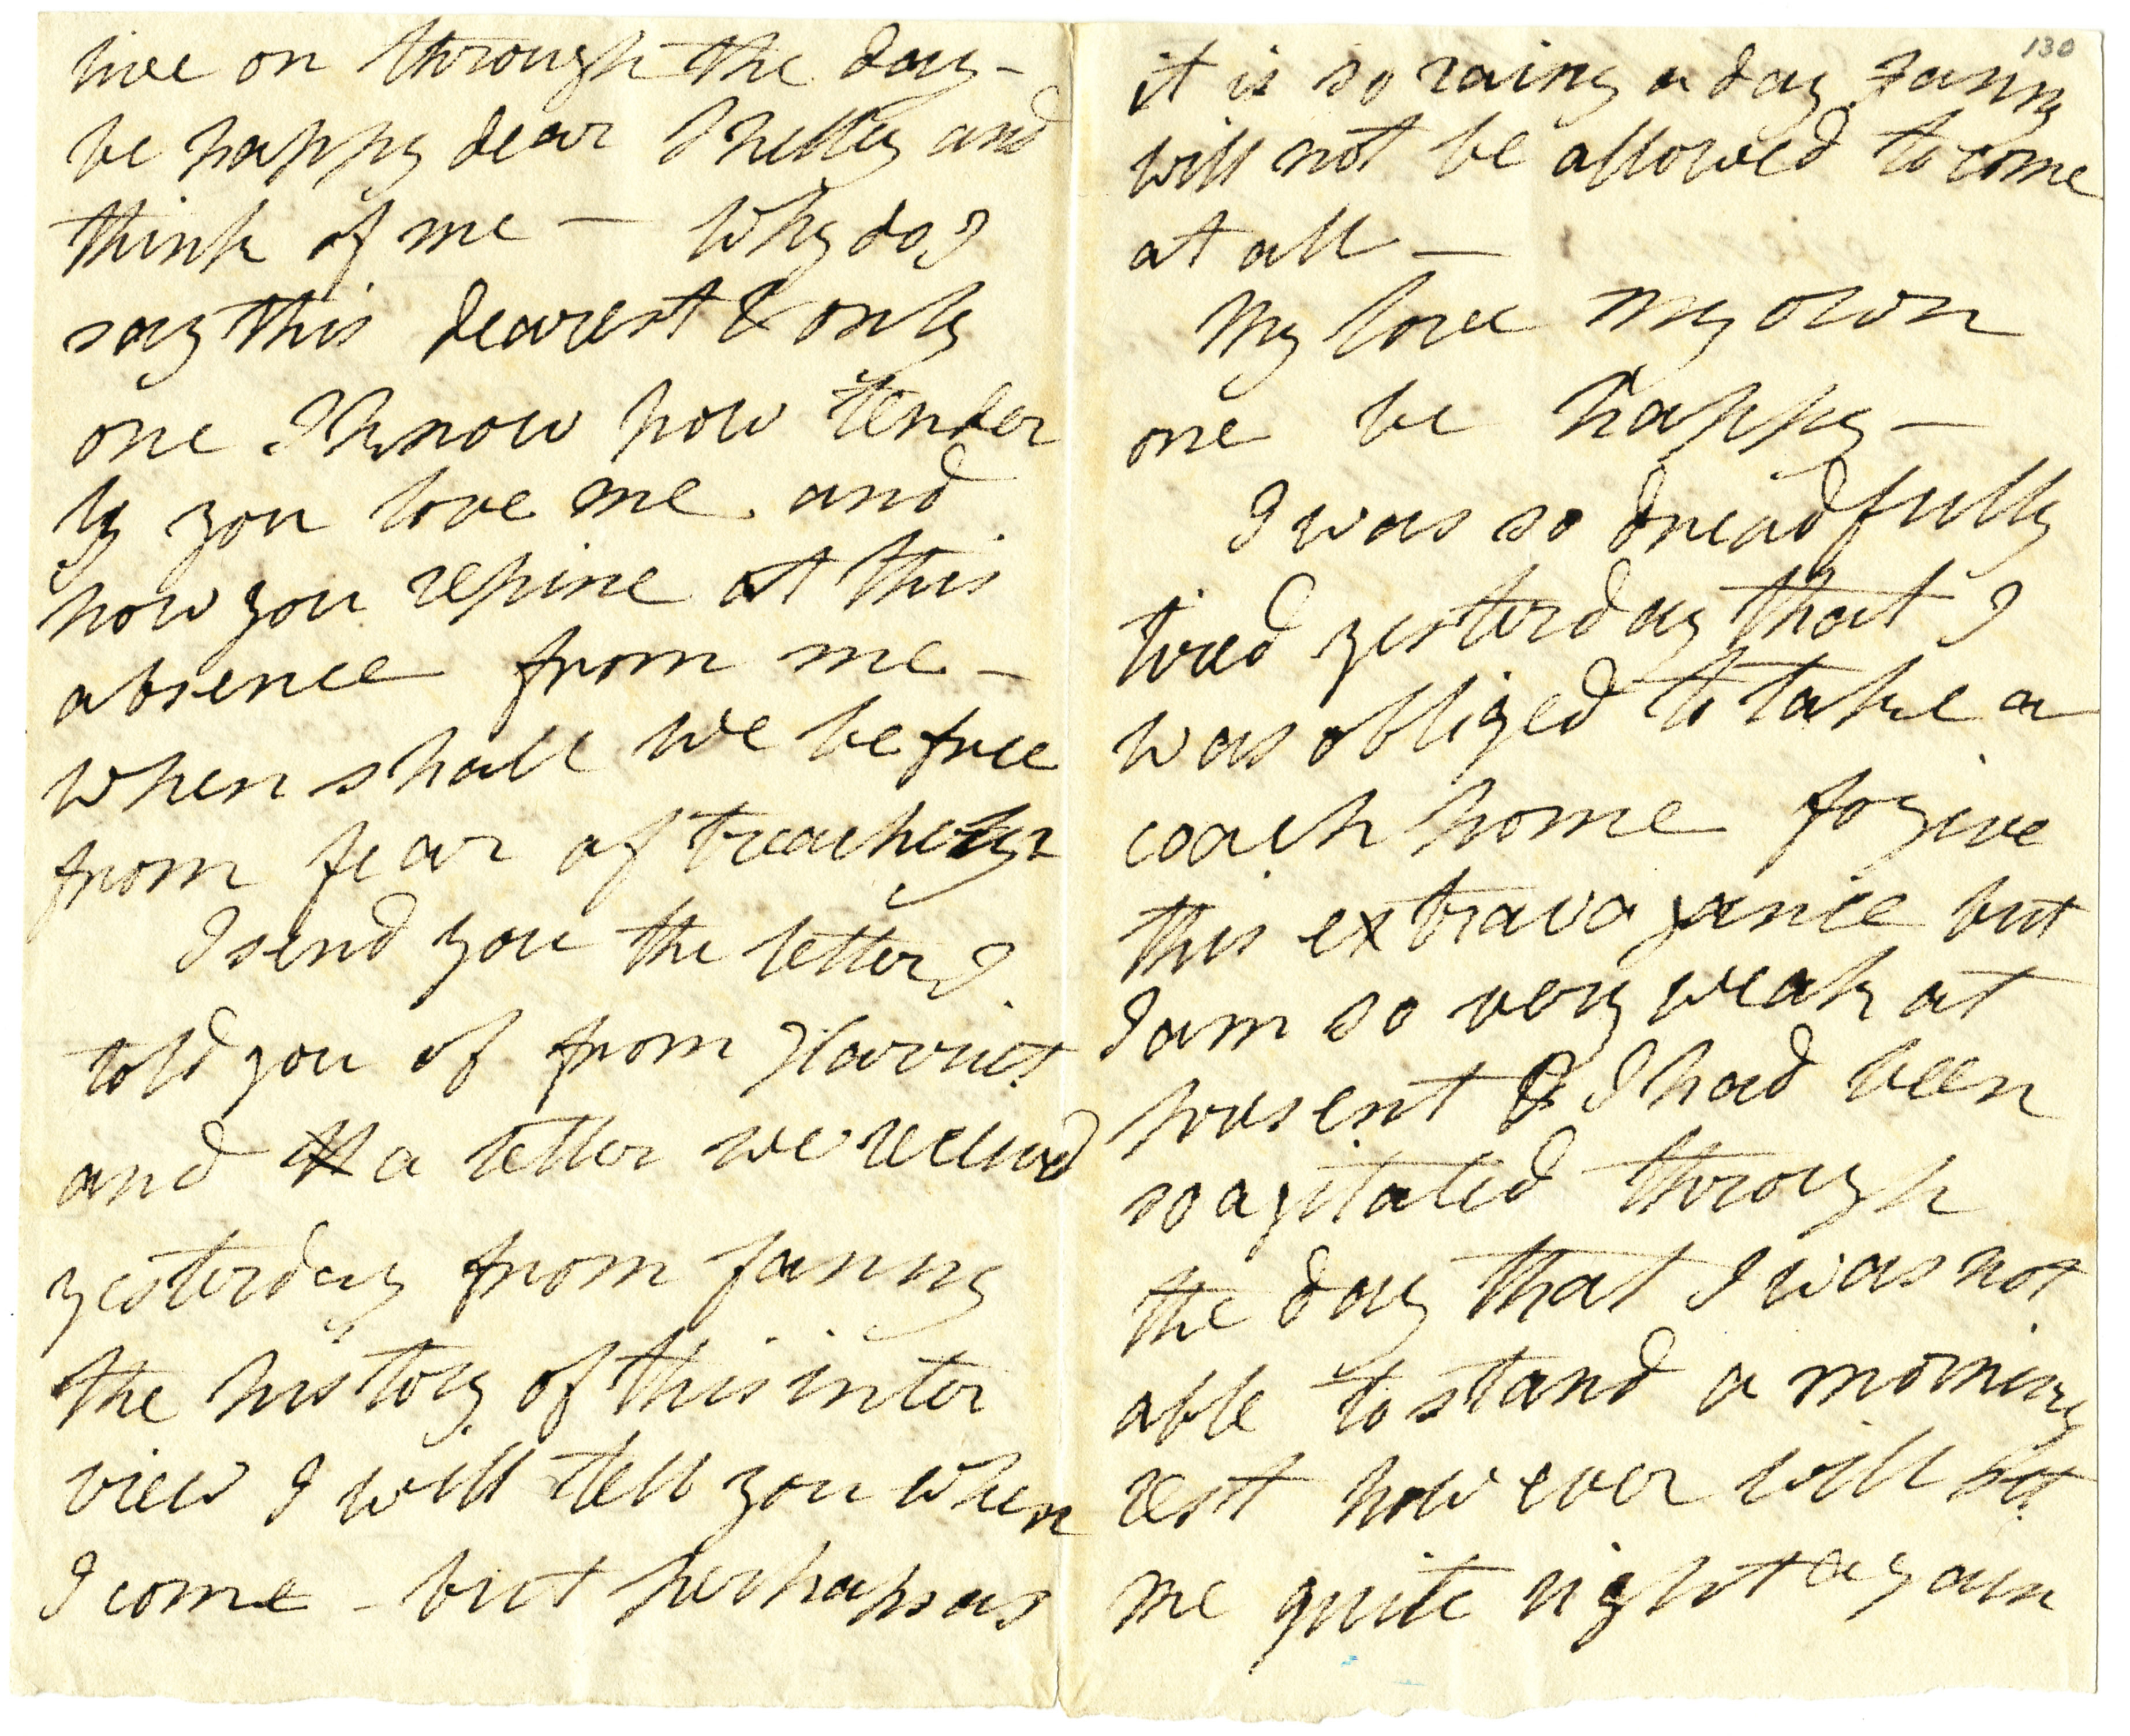 live on through the day –
be happy dear Shelley and
think of me — Why do I
say this dearest & only
one I know how tender
ly you love me and
how you repine at this
absence from me –
when shall we be free
from fear of treachery
I send you the letter I
told you of from Harriet
and a letter we received
yesterday from fanny
the history of this inter
view I will tell you when
I come – but perhaps as
130
it is so rainy a day Fanny
will not be allowed to come
at all —
My love my own
one be happy —
I was so dreadfully
tired yesterday that I
was obliged to take a
coach home fogive
this extravagance but
I am so very weak at
present & I had been
so agitated through
the day that I was not
able to stand a morning
rest however will set
me quite right again